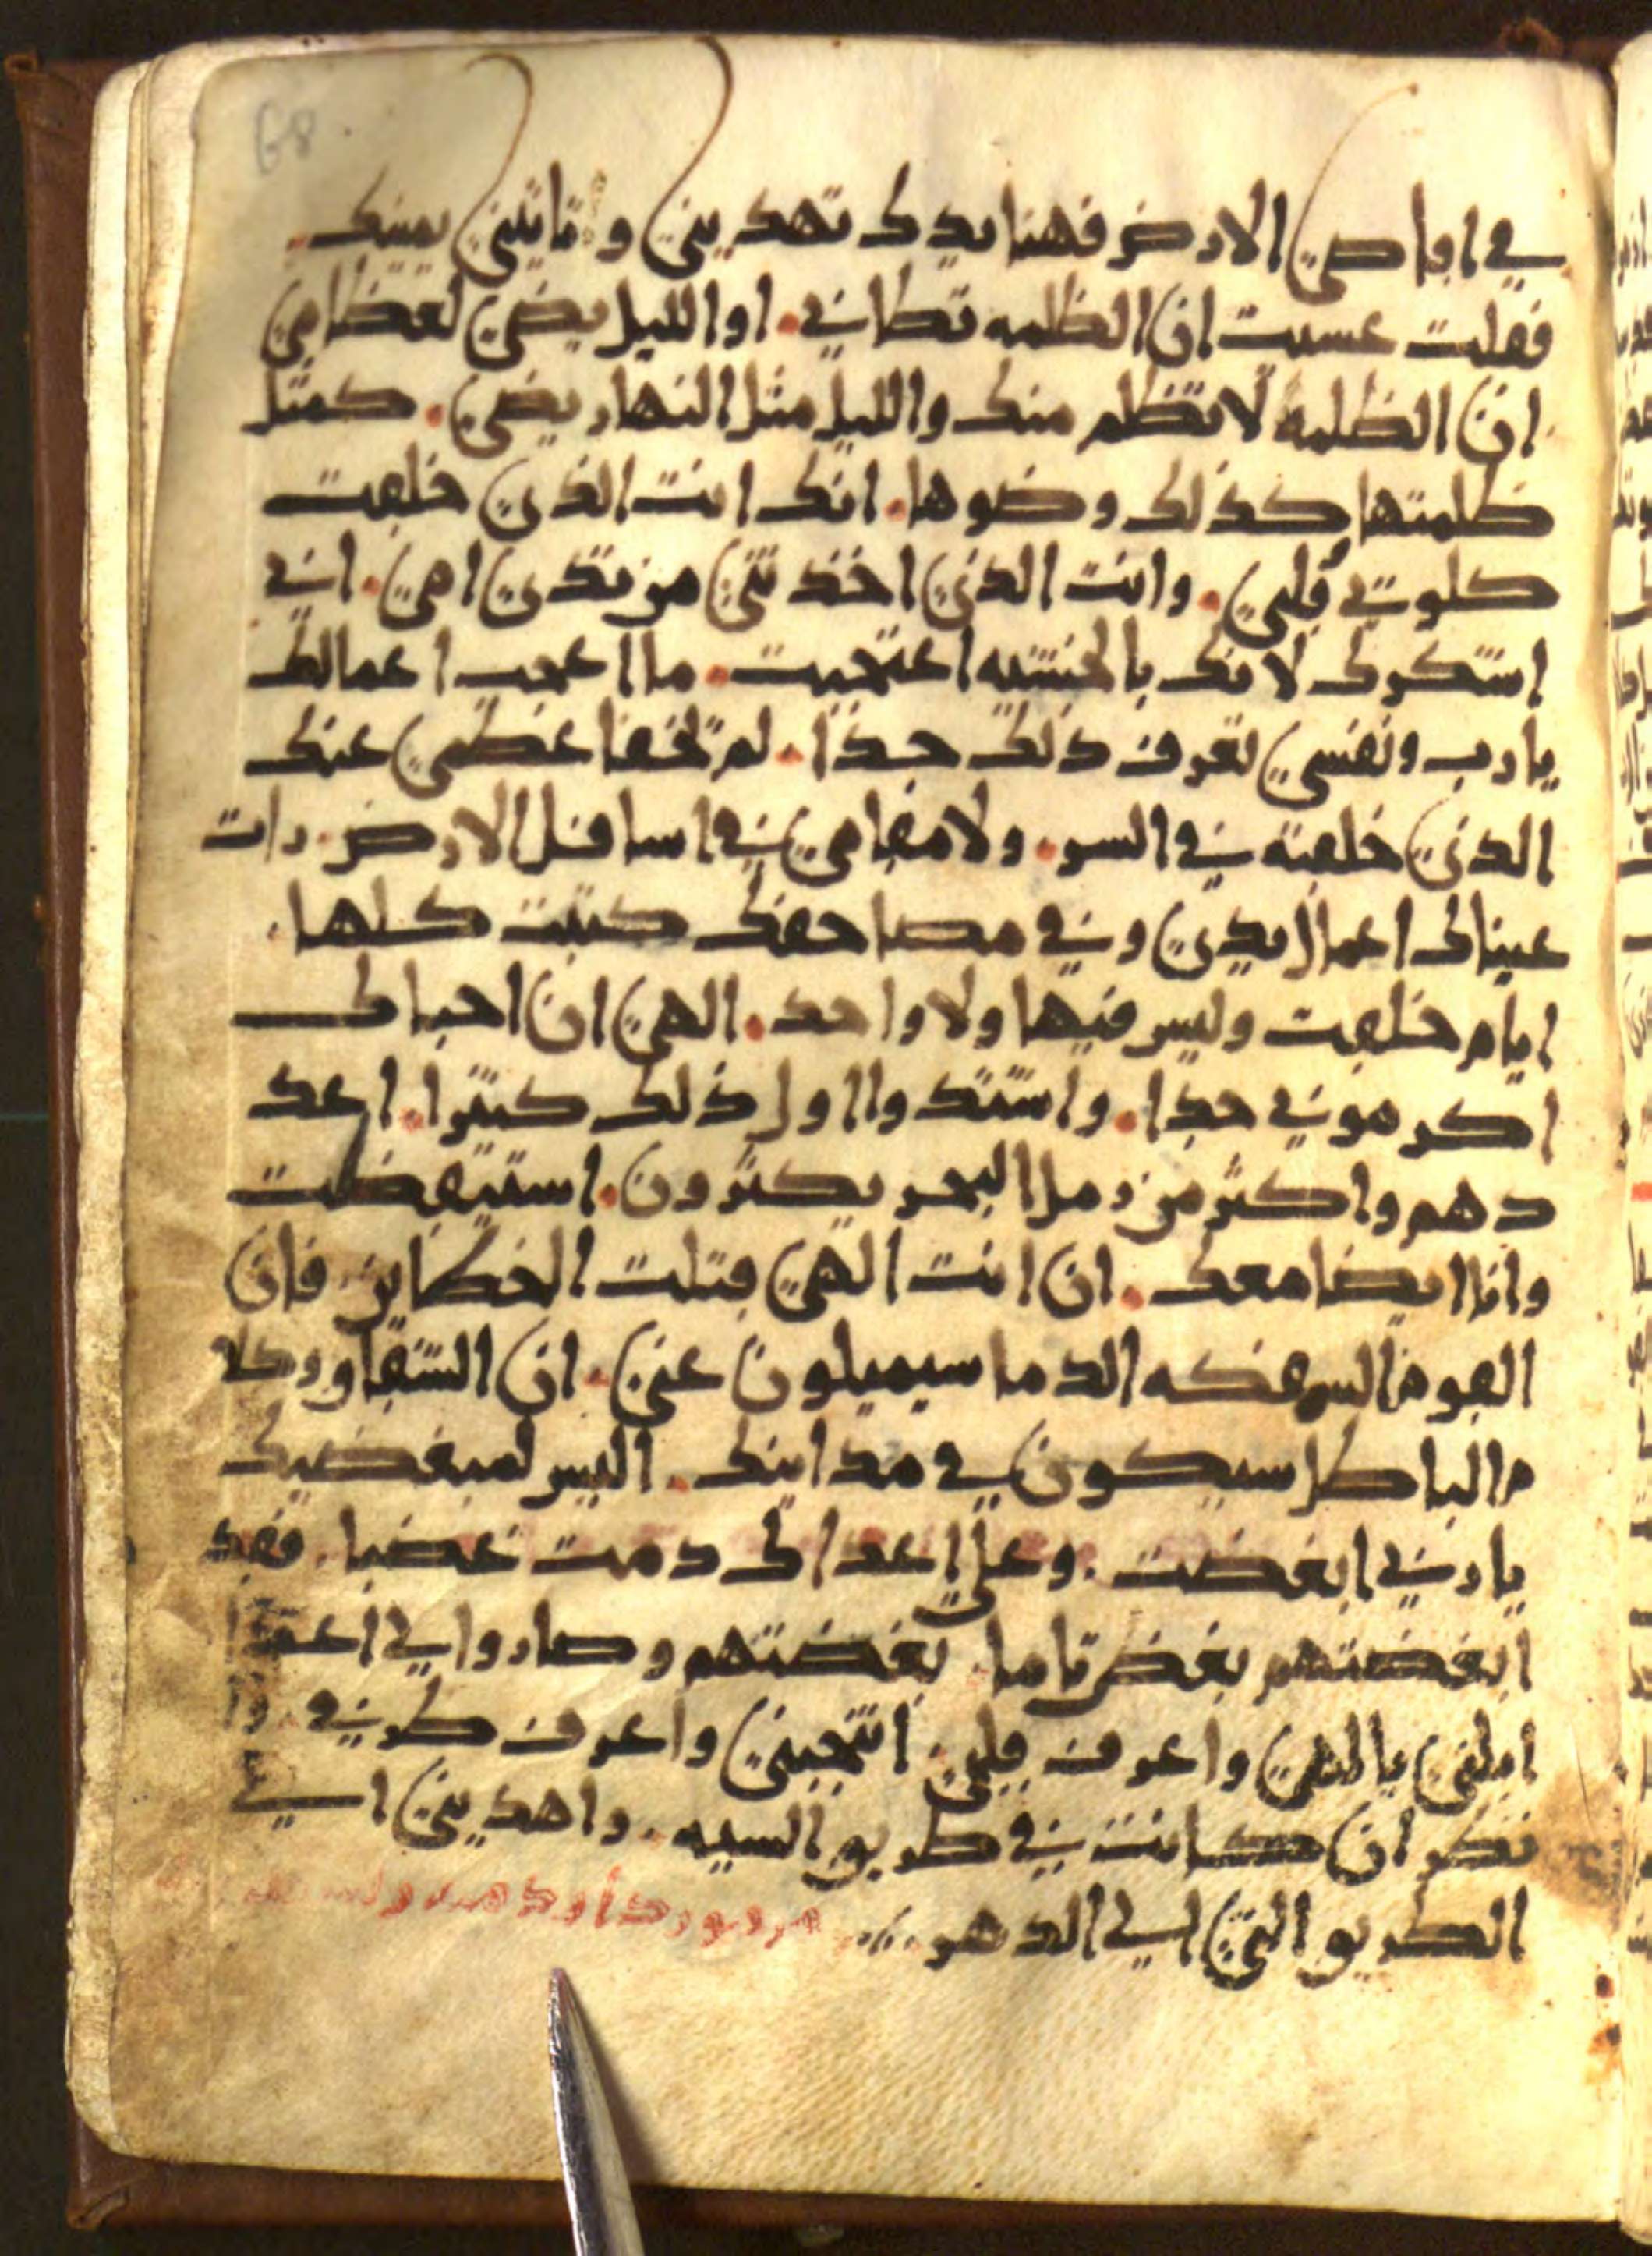 68
في اقاصي الارض فهنا يدك تهديني وتاتيني يمينك
فقلت عسيت ان الظلمه تطاني. او الليل يضي لعظامي
ان الظلمه لا تظلم منك والليل مثل النهار يضي. كمثل
ظلمتها كذلك وضوها. انك انت الذي خلقت
كلوتي قلبي. وانت الذي اخذتني من ثدي امي. اني
اشكرك لانك بالخشيه اعتجبت. ما اعجب اعمالك
يا رب ونفسي تعرف ذلك جدا. لم تخفا عظمي عنك
الذي خلقته في السر. ولا مقامي في اسافل الارض. رات
عيناك اعمال يدي وفي مصاحفك كتبت كلها.
ايام خلقت وليس فيها ولا واحد. الهي ان احباك
اكرموني جدا. واشتدوا اول ذلك كثيرا. اعد
دهم واكثر من رمل البحر يكثرون. استيقضت
وانا ايضا معك. ان انت الهي قتلت الخطاين. فان
القوم السفكه الدما سيميلون عني. ان الشقا
م الباطل سيكون في مداينك. اليس لمبغضيك
يا رب ابغضت. وعلى اعداك دمت غضبا. فقد
ابغضتهم بغض تاما. بغضتهم وصاروا لي اعدا
ابلني يا الهي واعرف قلبي. انتجبني واعرف طرقي.
تنظر ان كانت في طريق السيه. واهديني الي
الطريق التي الي الدهر.
مزمور داود